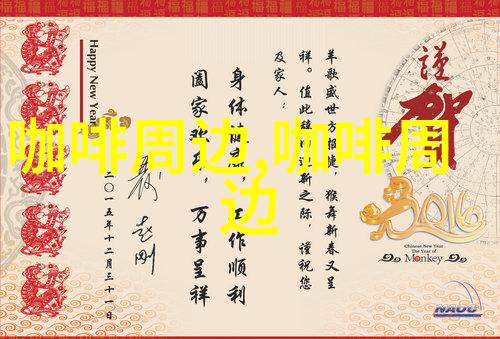 咖啡周边,咖啡周
边
Happy New Year
謹
賀
羊歌盛世方报捷，猴舞新春又呈
祥。值此辞旧迎新之际，谨祝您
及家人：
身体健康，工作顺利
阖家欢乐，万事呈祥
二〇一五年十二月三十一日
2016
Chinese New Year
The Year of
Monkey
NAOC